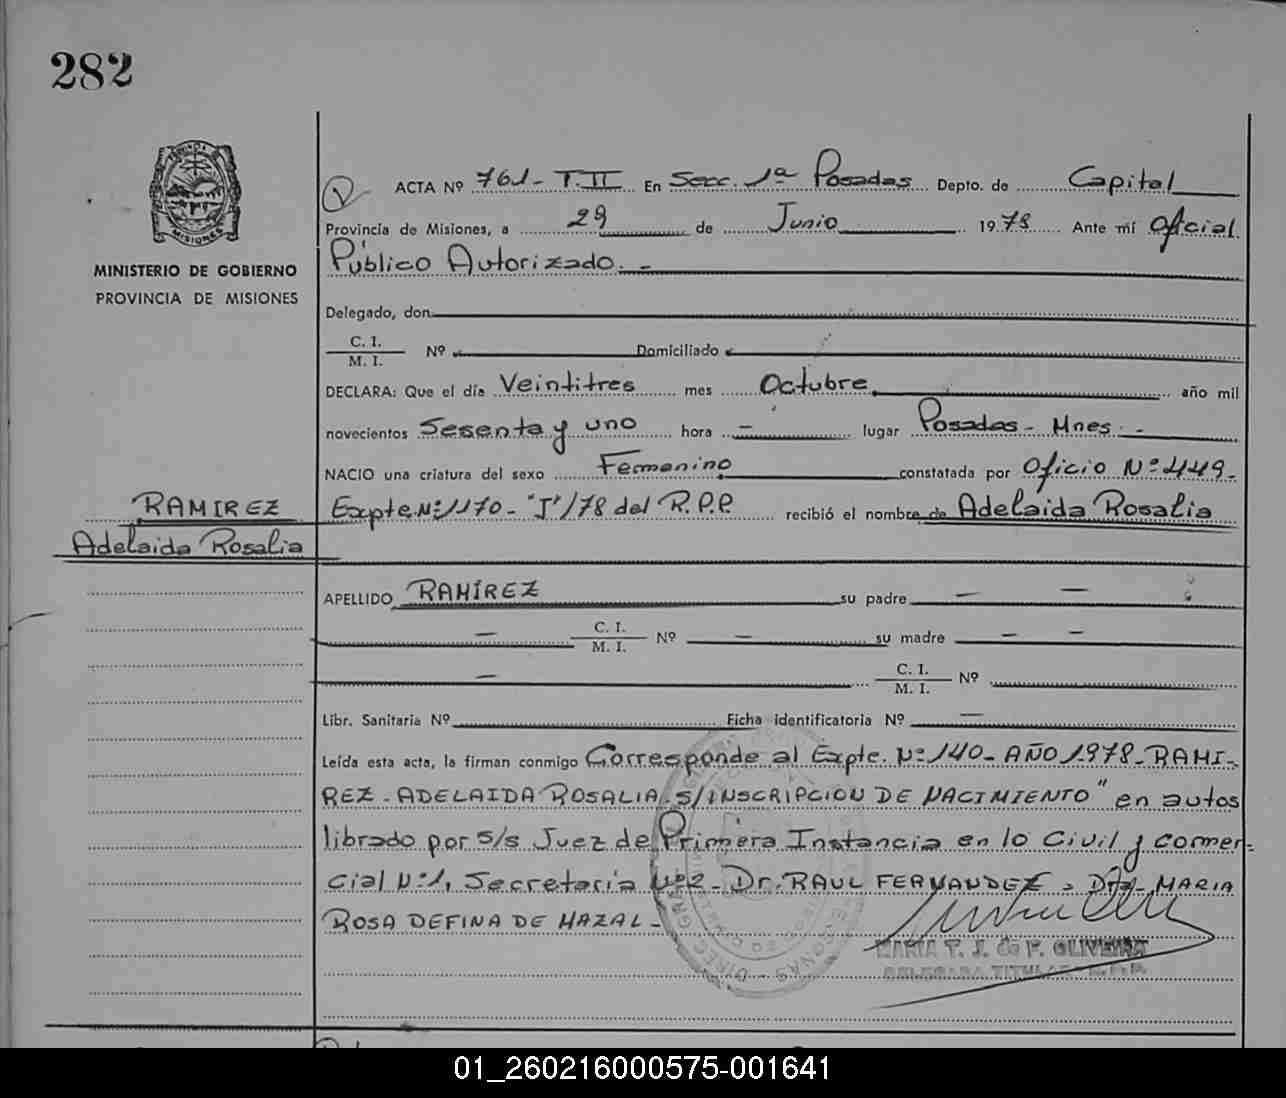 282
MISIONES
MINISTERIO DE GOBIERNO
PROVINCIA DE MISIONES
RAMIREZ
Adelaida Rosalia
ACTA Nº 761- T.II En Secc. 1ª Posadas Depto. de Capital
Provincia de Misiones, a 29 de Junio 1978 Ante mí Oficial
Público Autorizado. -
Delegado, don
C. I.
M. I. Nº Domiciliado
DECLARA: Que el día Veintitres mes Octubre año mil
novecientos Sesenta y uno hora - lugar Posadas - Mnes. -
NACIO una criatura del sexo Femenino constatada por Oficio Nº 449-
Expte. Nº 1170- "J"/78 del R.P.P. recibió el nombre de Adelaida Rosalia
APELLIDO RAMÍREZ su padre - -
- C. I. M. I. Nº - su madre - -
- C. I. M. I. Nº
Libr. Sanitaria Nº Ficha identificatoria Nº -
Leída esta acta, la firman conmigo Corresponde al Expte. Nº 140- AÑO 1978- RAMI-
REZ - ADELAIDA ROSALIA S/INSCRIPCION DE NACIMIENTO" en autos
librado por S/S Juez de Primera Instancia en lo Civil y comer-
cial Nº 1, Secretaría Nº 2- Dr. RAUL FERNANDEZ, Dra. MARIA
ROSA DEFINA DE HAZAL -
MARIA T. J. de P. OLIVEIRA
DELEGADA TITULAR
01_260216000575-001641